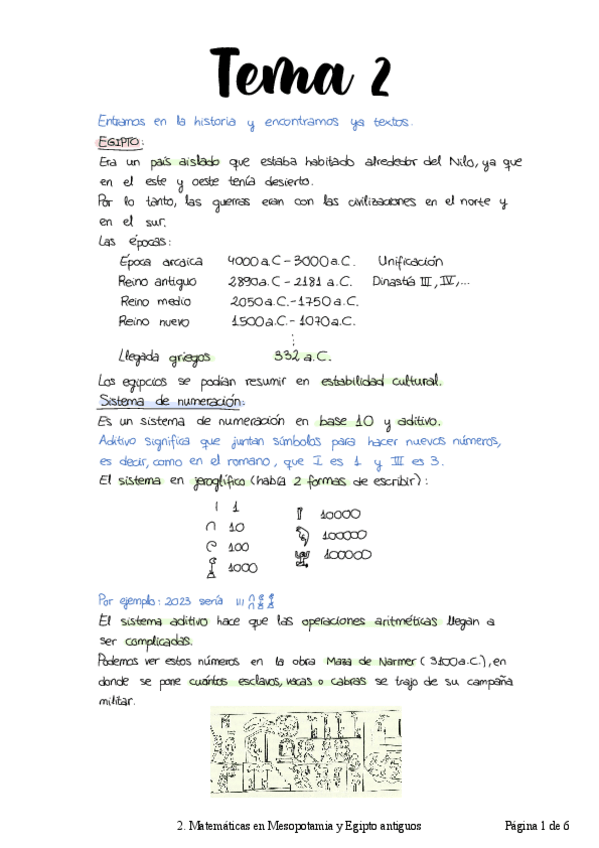 Tema 2
Entramos en la historia y encontramos ya textos.
EGIPTO:
Era un país aislado que estaba habitado alrededor del Nilo, ya que
en el este y oeste tenía desierto.
Por lo tanto, las guerras eran con las civilizaciones en el norte y
en el sur.
Las épocas:
Época arcaica 4000 a.C – 3000 a.C. Unificación
Reino antiguo 2890 a.C – 2181 a.C. Dinastía III, IV,...
Reino medio 2050 a.C. – 1750 a.C.
Reino nuevo 1500 a.C. – 1070 a.C.
Llegada griegos 332 a.C.
Los egipcios se podían resumir en estabilidad cultural.
Sistema de numeración:
Es un sistema de numeración en base 10 y aditivo.
Aditivo significa que juntan símbolos para hacer nuevos números,
es decir, como en el romano, que I es 1 y III es 3.
El sistema en jeroglífico (había 2 formas de escribir):
1 10000
10 100000
100 100000
1000
Por ejemplo: 2023 sería
El sistema aditivo hace que las operaciones aritméticas llegan a
ser complicadas.
Podemos ver estos números en la obra Maza de Narmer (3100 a.C.), en
donde se pone cuántos esclavos, vacas o cabras se trajo de su campaña
militar.
2. Matemáticas en Mesopotamia y Egipto antiguos Página 1 de 6